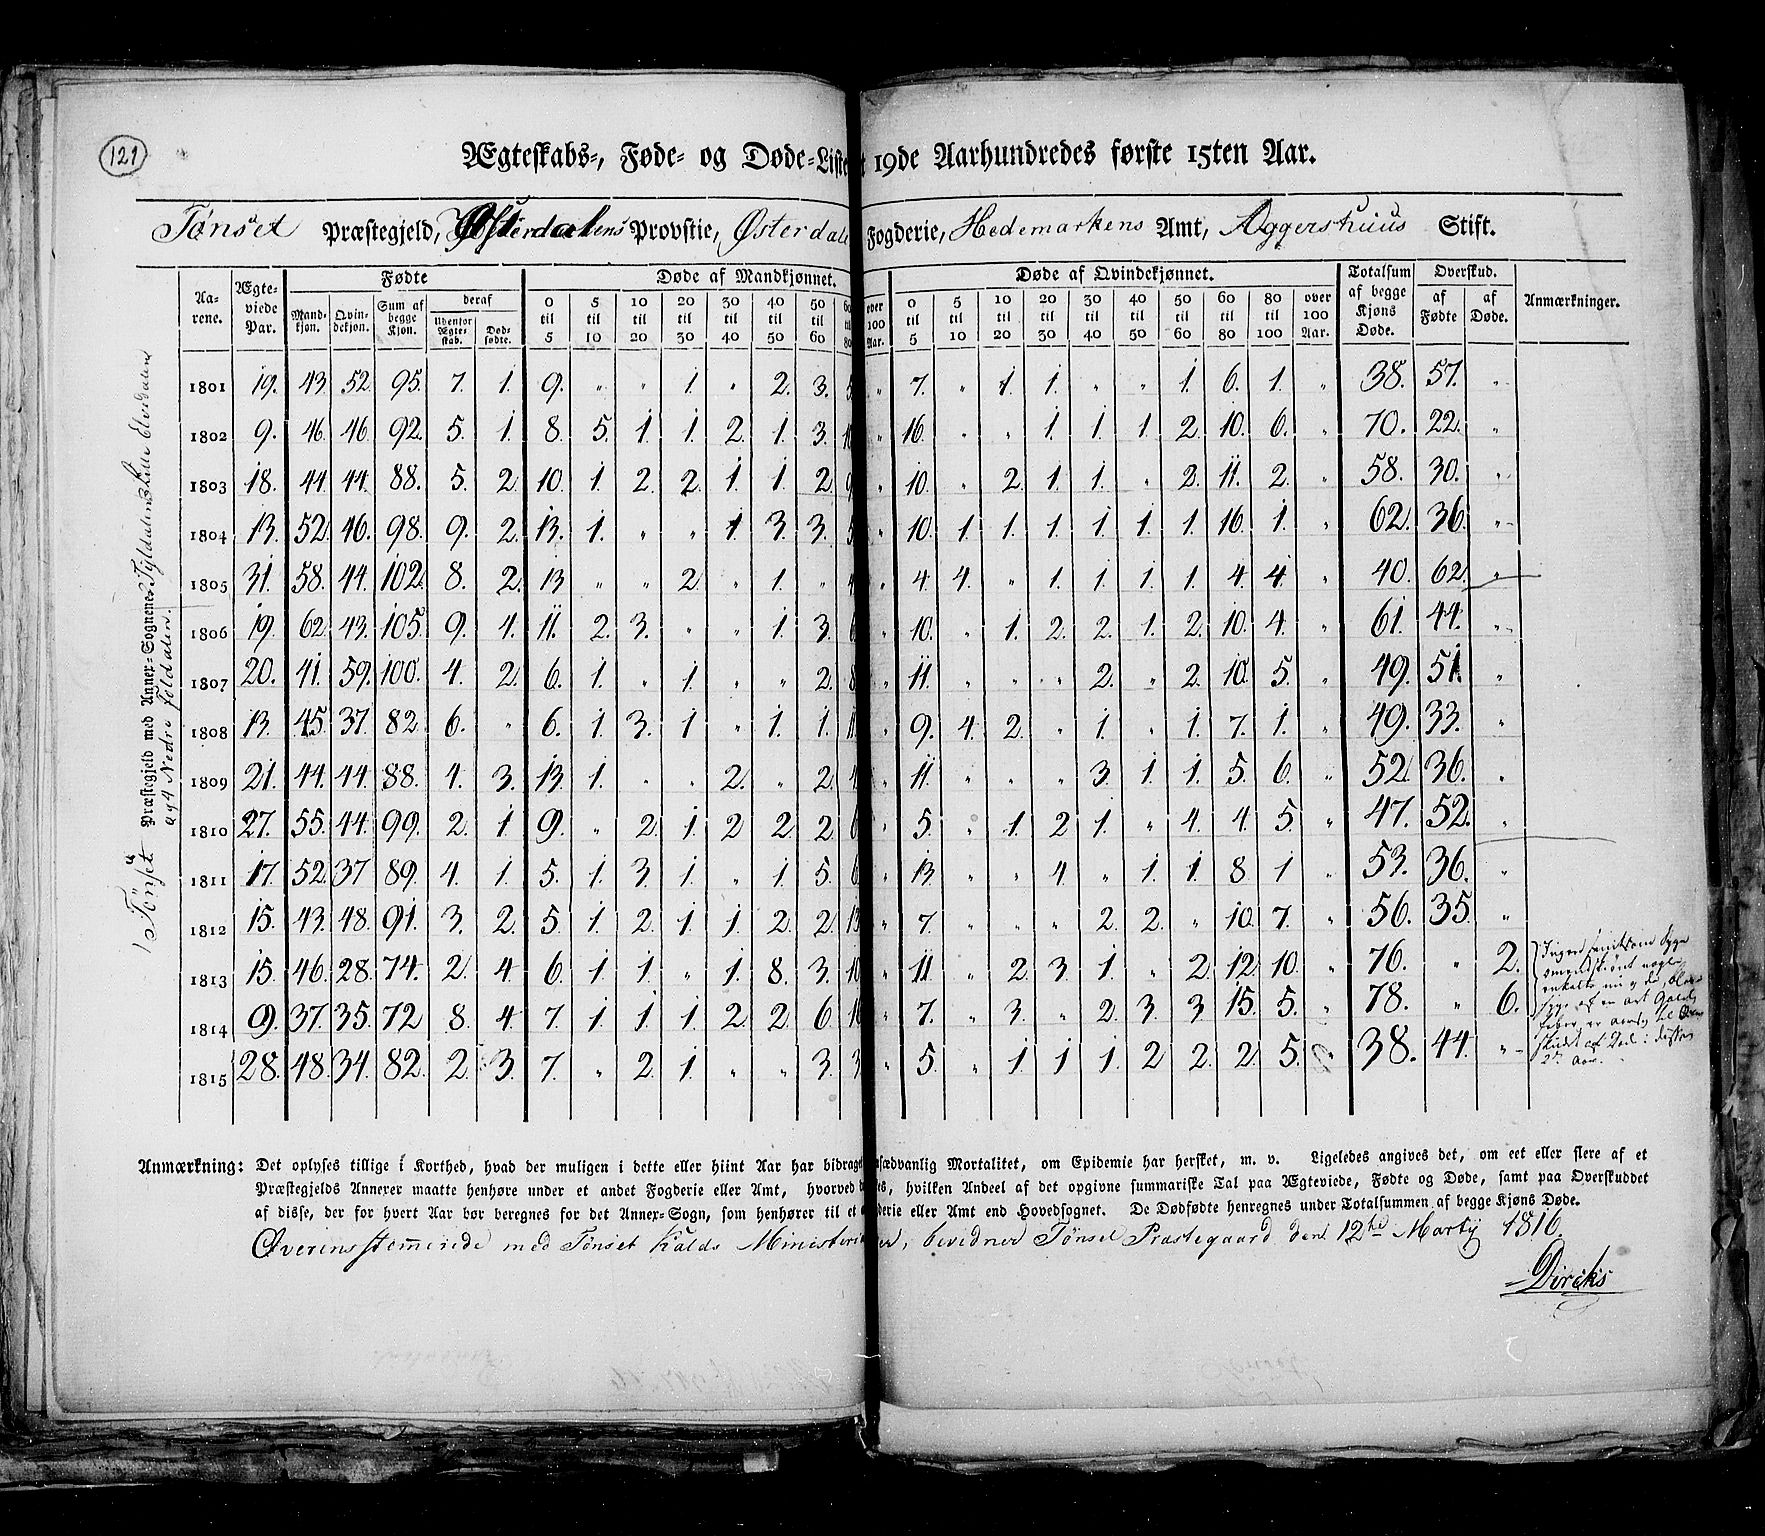 121
Ægteskabs-, Føde- og Døde-Liste 19de Aarhundredes første 15ten Aar.
Tønset Præstegjeld, Østerdalens Provstie, Østerdale Fogderie, Hedemarkens Amt, Aggershuus Stift.
Aarene. Ægteviede Par. Fødte Døde af Mandkjønnet. Døde af Qvindekjønnet. Totalsum af begge Kjøns Døde. Overskud. Anmærkninger.
Mandkjøn. Qvindekjøn. Sum af begge Kjøn. deraf af Fødte af Døde.
Udenfor Ægtestab. Dødfødte. 0 til 5 5 til 10 10 til 20 20 til 30 30 til 40 40 til 50 50 til 60 60 til 80 over 100 Aar. 0 til 5 5 til 10 10 til 20 20 til 30 30 til 40 40 til 50 50 til 60 60 til 80 80 til 100 over 100 Aar.
1801 19. 43 52 95. 7. 1. 9. " " 1 " 2. 3. 5 " 7. " 1 1. " " 1 6. 1. " 38. 57. "
1802 9. 46. 46 92. 5. 1. 8. 5. 1. 1. 2. 1. 3. 10 " 16. " " 1. 1. 1 2 10. 6. " 70. 22. "
1803 18. 44 44. 88. 5. 2 10. 1. 2. 2. 1. 1. 2 9 " 10. " 2. 1 1. " 2. 11. 2. " 58. 30. "
1804 13. 52. 46. 98. 9. 2. 13. 1. " " 1 3. 3. 5 " 10. 1. 1. 1. 1. 1. 1. 16. 1. " 62. 36. "
1805 31. 58. 44. 102. 8. 2. 13 " " 2 " 1. " 4 " 4. 4. " 1. 1. 1. 1. 4. 4. " 40. 62. "
1806 19. 62 43. 105. 9. 1. 11. 2. 3. " " 1. 3. 6 " 10. " 1. 2. 2. 1. 2. 10. 4. " 61. 44. "
1807 20. 41. 59. 100. 4. 2. 6. 1. " 1. " " 2. 8 " 11. " " " 2. " 2. 10. 5. " 49. 51. "
1808 13. 45. 37. 82. 6. " 6. 1. 3. 1 " 1. 1. 11 " 9. 4. 2. " 1. " 1. 7. 1. " 49. 33. "
1809 21. 44. 44. 88. 4. 3. 13. 1. " " 2. " 2. 4 " 11. " " " 3. 1 1. 5. 6. " 52. 36. "
1810 27. 55. 44. 99. 2. 1 9. " 2. 1. 2 2 2 6 " 5. " 1. 2 1. " 4. 4. 5. " 47. 52. "
1811 17. 52. 37 89. 4. 1. 5. 1. 3. 1. " 1. 5. 6 " 13. " " 4. " 1. 1. 8 1 " 53. 36. "
1812 15. 43. 48. 91. 3. 2. 5. 1 2. 1. 1. 2 2 13 " 7. " " " 2 2. " 10. 7. " 56. 35. "
1813 15. 46. 28. 74. 2. 4. 6. 1 1. " 1. 8. 3. 10 " 11. " 2. 3. 1. " 2. 12. 10. " 76. " 2.
1814 9. 37. 35. 72 8. 4. 7. 1. 1. 1. 2. 2. 6 16 " 7. " 3. " 2. 3 3 15. 5. " 78. " 6.
1815 28. 48. 34. 82. 2. 3. 7. " 2. 1. " " 3. 3 " 5. " 1. 1. 1. 2 2. 2. 5. " 38. 44. "
2de Aar.
Tönset Præstegjeld med Annex-Sognene
og 4 Nedre Foldalen.
Anmærkning: Det oplyses tillige i Korthed, hvad der muligen i dette eller hiint Aar har bidraget sædvanlig Mortalitet, om Epidemie har hersket, m. v. Ligeledes angives det, om eet eller flere af et
Præstegjelds Annexer maatte henhøre under et andet Fogderie eller Amt, hvorved hvilken Andeel af det opgivne summariske Tal paa Ægteviede, Fødte og Døde, samt paa Overskuddet
af disse, der for hvert Aar bør beregnes for det Annex-Sogn, som henhører til et eller Amt end Hovedsognet. De Dødfødte henregnes under Totalsummen af begge Kjøns Døde.
Overinsstemmende med Tönset Kalds bevidner Tönset Præstegaard den 12te Martij 1816.
Dircks